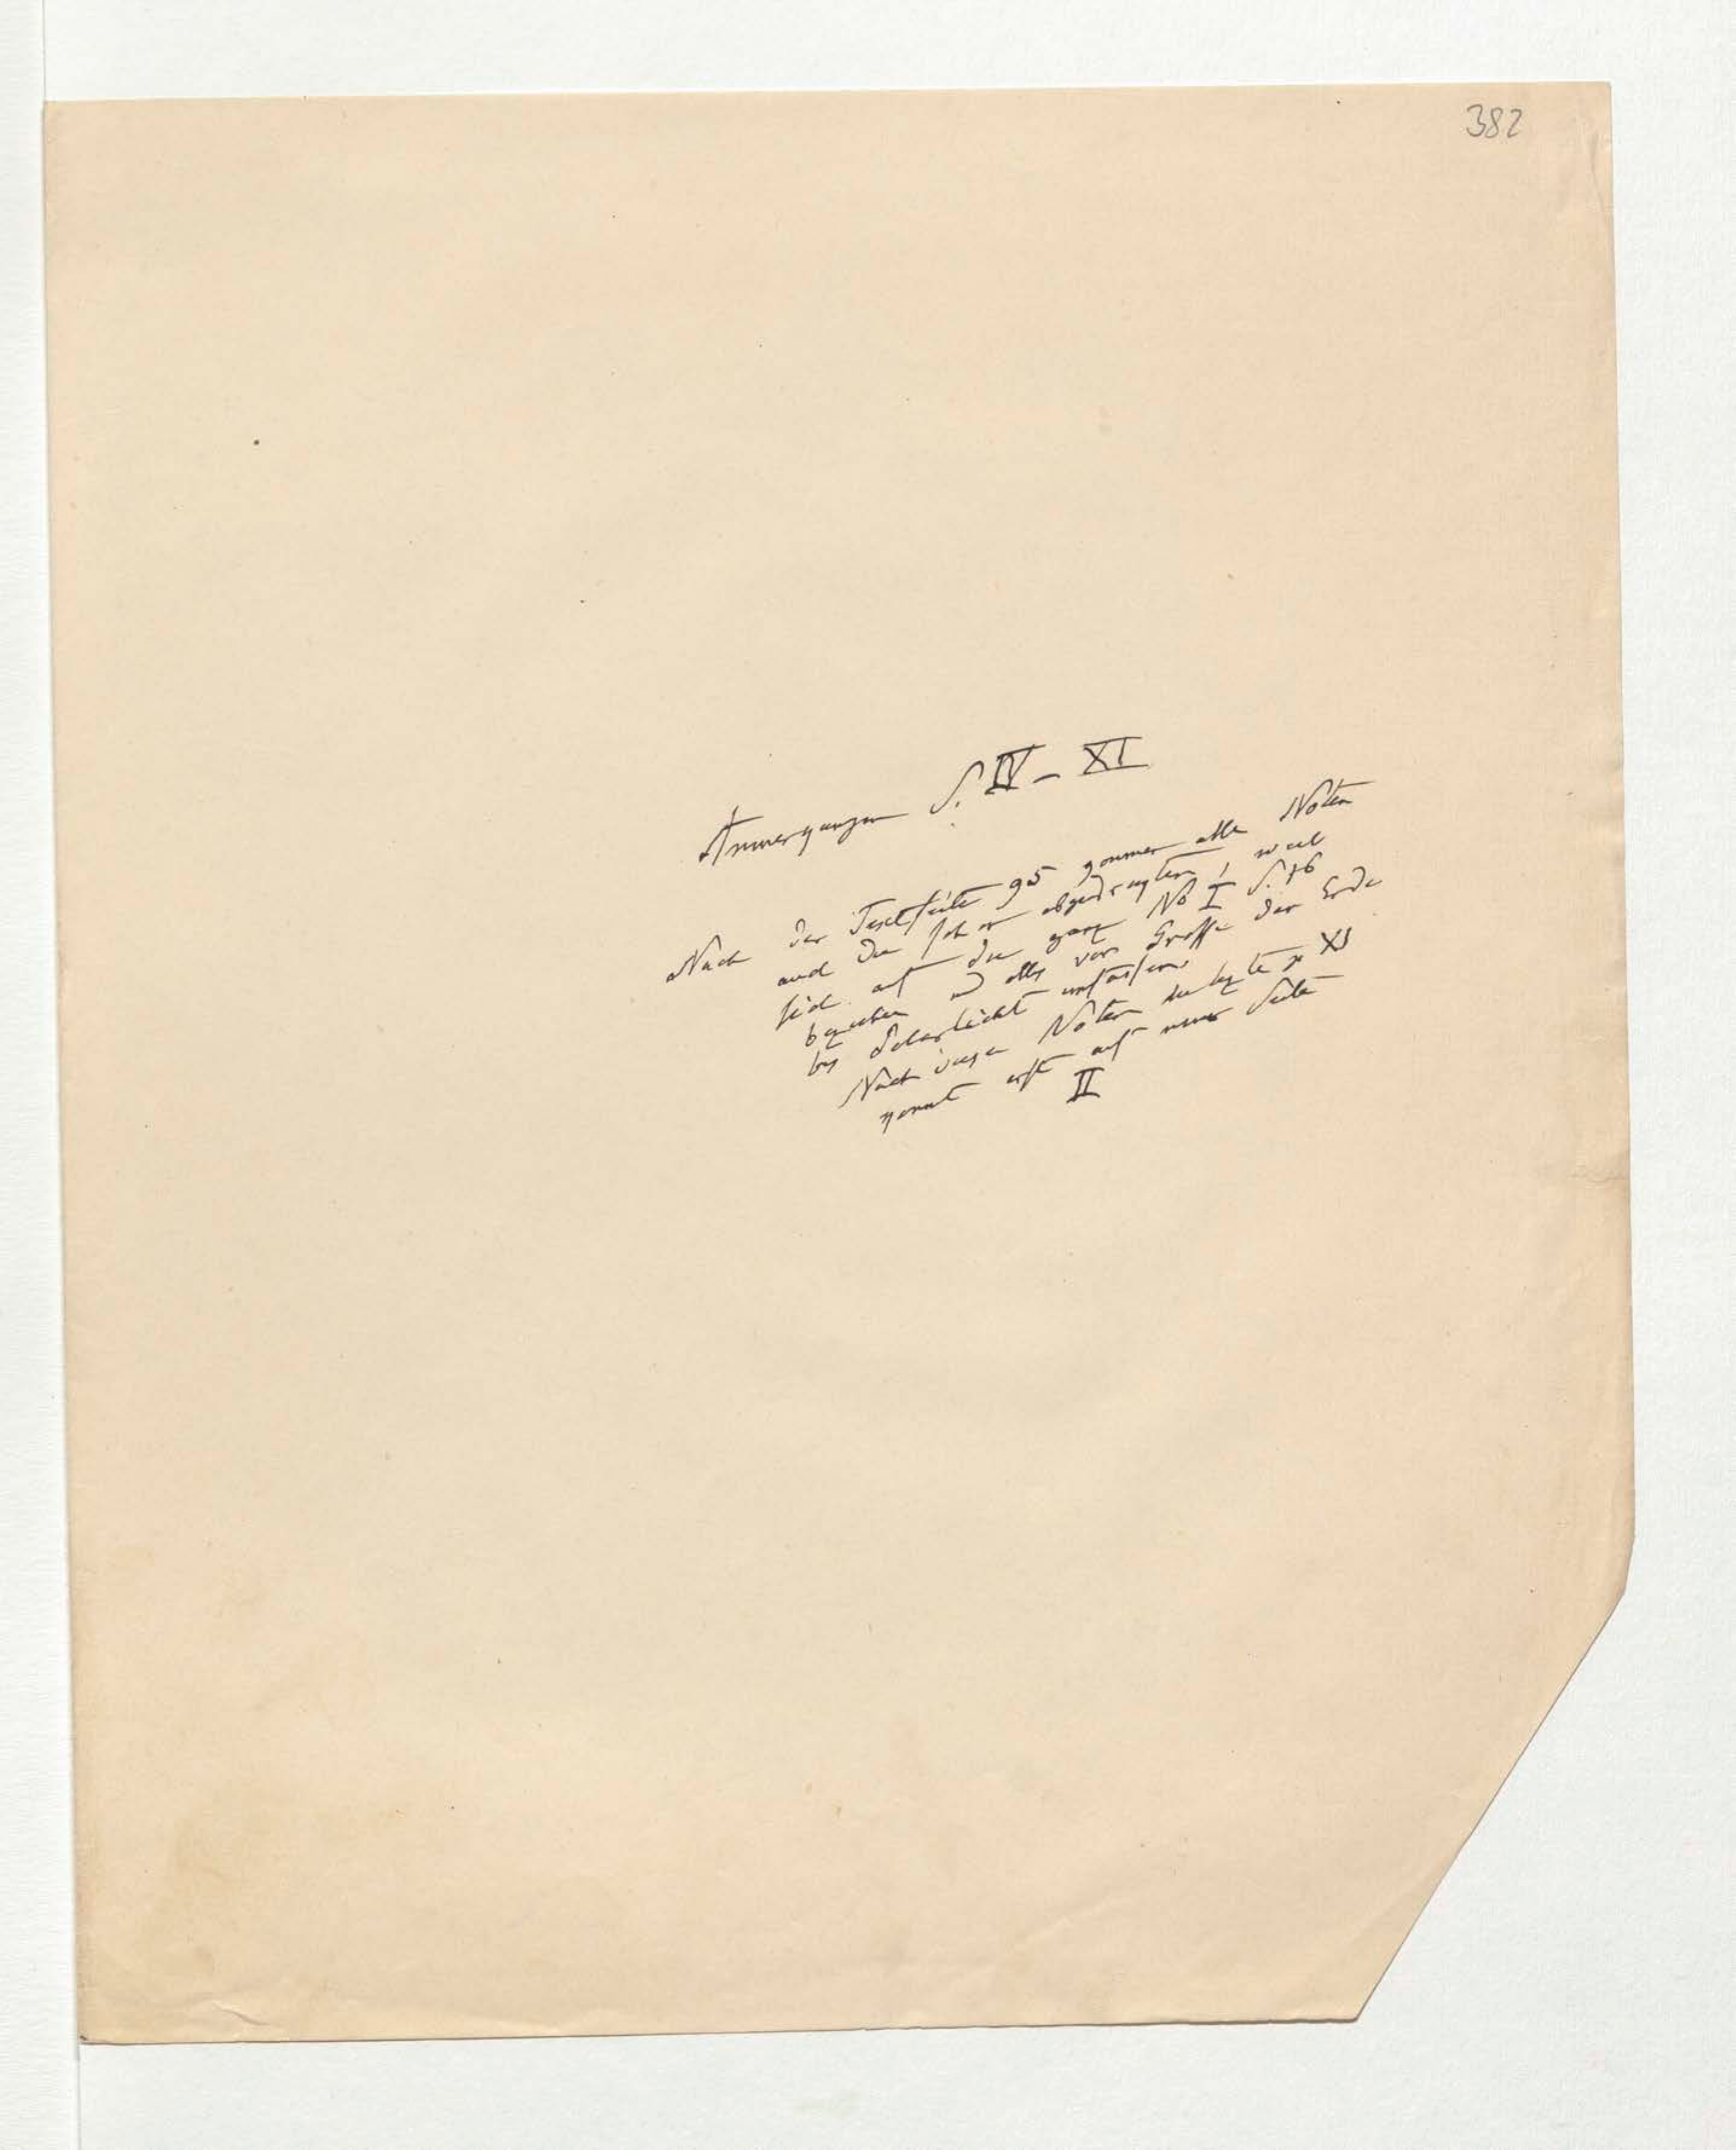 382
Anmerkungen S. IV – XI
Nach der Textseite 95 kommen alle Noten
auch die schon abgedruckten, weil
sich auf die ganz No I S. 76
beziehen und alles von Grösse der Erde
bis Polarlicht umfassen
Nach diesen Noten die letzte p XI
kommt erst auf neuer Seite
II